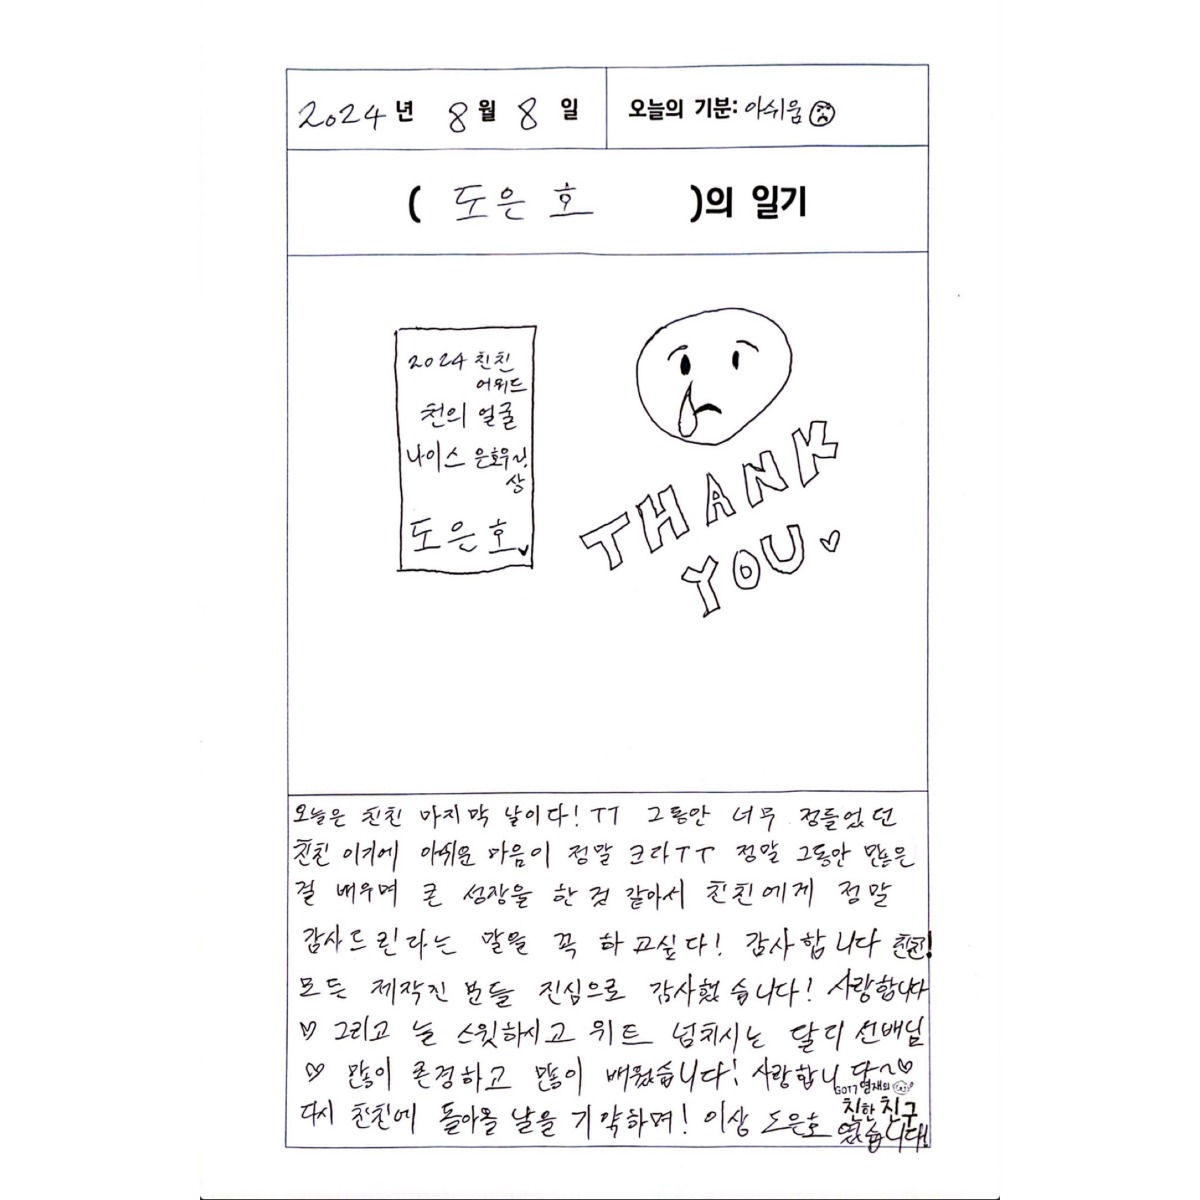 2024년 8월 8일 오늘의 기분: 아쉬움
( 도은호 )의 일기
2024 친친
어워드
천의 얼굴
나이스 은호우~!
상
도은호
THANK
YOU
오늘은 친친 마지막 날이다! ㅜㅜ 그동안 너무 정들었던
친친 이키에 아쉬운 마음이 정말 크라ㅜㅜ 정말 그동안 많은
걸 배우며 큰 성장을 한 것 같아서 친친에게 정말
감사드린다는 말을 꼭 하고싶다! 감사합니다 친친!
모든 제작진 분들 진심으로 감사했습니다! 사랑합니다
♡ 그리고 늘 스윗하시고 위트 넘치시는 달디 선배님
♡ 많이 존경하고 많이 배웠습니다! 사랑합니다~♡
다시 친친에 돌아올 날을 기약하며! 이상 도은호 GOT7 영재의 친한친구
였습니다!